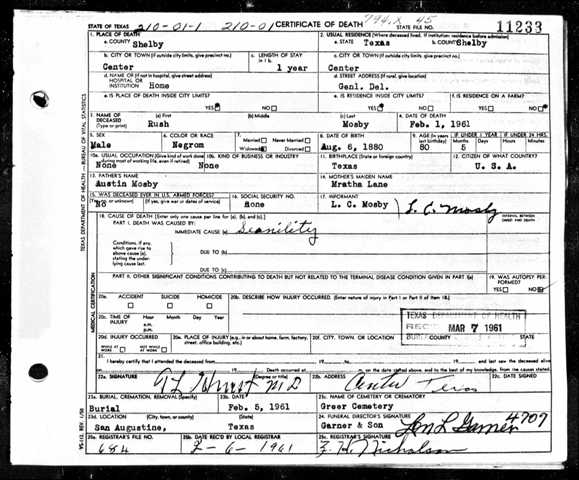 STATE OF TEXAS 210-01-1 210-01 CERTIFICATE OF DEATH 794.X 45 11233
1. PLACE OF DEATH
a. COUNTY Shelby
2. USUAL RESIDENCE (Where deceased lived. If institution: residence before admission)
a. STATE Texas b. COUNTY Shelby
b. CITY OR TOWN (If outside city limits, give precinct no.) Center
c. LENGTH OF STAY in 1 b. 1 year
c. CITY OR TOWN (If outside city limits, give precinct no.) Center
d. NAME OF (If not in hospital, give street address) HOSPITAL OR INSTITUTION Home
d. STREET ADDRESS (If rural, give location) Genl. Del.
e. IS PLACE OF DEATH INSIDE CITY LIMITS? YES NO
e. IS RESIDENCE INSIDE CITY LIMITS? YES NO
f. IS RESIDENCE ON A FARM? YES NO
3. NAME OF DECEASED (Type or print) (a) First Rush (b) Middle (c) Last Mosby
4. DATE OF DEATH Feb. 1, 1961
5. SEX Male
6. COLOR OR RACE Negrom
7. Married Never Married Widowed Divorced
8. DATE OF BIRTH Aug. 5, 1880
9. AGE (In years last birthday) 80 IF UNDER 1 YEAR Months 5 Days IF UNDER 24 HRS. Hours Minutes
10a. USUAL OCCUPATION (Give kind of work done during most of working life, even if retired) None
10b. KIND OF BUSINESS OR INDUSTRY None
11. BIRTHPLACE (State or foreign country) Texas
12. CITIZEN OF WHAT COUNTRY? U. S. A.
13. FATHER'S NAME Austin Mosby
14. MOTHER'S MAIDEN NAME Mratha Lane
15. WAS DECEASED EVER IN U.S. ARMED FORCES? (Yes, no, or unknown) No (If yes, give war or dates of service)
16. SOCIAL SECURITY NO. None
17. INFORMANT L. C. Mosby L. C. Mosby
18. CAUSE OF DEATH [Enter only one cause per line for (a), (b), and (c).]
INTERVAL BETWEEN ONSET AND DEATH
PART I. DEATH WAS CAUSED BY:
IMMEDIATE CAUSE (a) Seanility
Conditions, if any, which gave rise to above cause (a), stating the underlying cause last.
DUE TO (b)
DUE TO (c)
PART II. OTHER SIGNIFICANT CONDITIONS CONTRIBUTING TO DEATH BUT NOT RELATED TO THE TERMINAL DISEASE CONDITION GIVEN IN PART I(a)
19. WAS AUTOPSY PERFORMED? YES NO
20a. ACCIDENT SUICIDE HOMICIDE
20b. DESCRIBE HOW INJURY OCCURRED. (Enter nature of injury in Part I or Part II of Item 18.)
20c. TIME OF INJURY Hour a.m. p.m. Month Day Year
TEXAS DEPARTMENT OF HEALTH
REC MAR 7 1961
20d. INJURY OCCURRED WHILE AT WORK NOT WHILE AT WORK
20e. PLACE OF INJURY (e.g., in or about home, farm, factory, street, office building, etc.)
20f. CITY, TOWN, OR LOCATION COUNTY STATE
21. I hereby certify that I attended the deceased from 19 to 19 and last saw the deceased alive
on 19 Death occurred at m. on the date stated above, and to the best of my knowledge, from the causes stated.
22a. SIGNATURE M D (Degree or title)
22b. ADDRESS Center Texas
22c. DATE SIGNED
23a. BURIAL, CREMATION, REMOVAL (Specify) Burial
23b. DATE Feb. 5, 1961
23c. NAME OF CEMETERY OR CREMATORY Greer Cemetery
23d. LOCATION (City, town, or county) (State) San Augustine, Texas
24. FUNERAL DIRECTOR'S SIGNATURE Garner & Son Garner 4707
25a. REGISTRAR'S FILE NO. 684
25b. DATE REC'D BY LOCAL REGISTRAR 2-6-1961
25c. REGISTRAR'S SIGNATURE Nicholson
TEXAS DEPARTMENT OF HEALTH — BUREAU OF VITAL STATISTICS
MEDICAL CERTIFICATION
VS-112, REV. 1/58